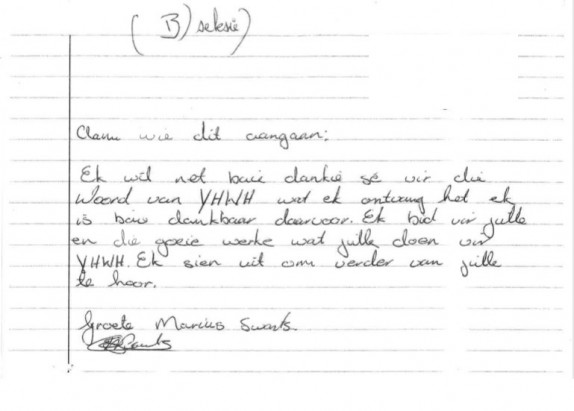 (B) seksie)
Clanu wie dit aangaan:
Ek wil net baie dankie sê vir die
Woord van YHWH wat ek ontvang het ek
is baie dankbaar daarvoor. Ek bid vir julle
en die goeie werke wat julle doen vir
YHWH. Ek sien uit om verder van julle
te hoor.
Groete Marcius Swarts